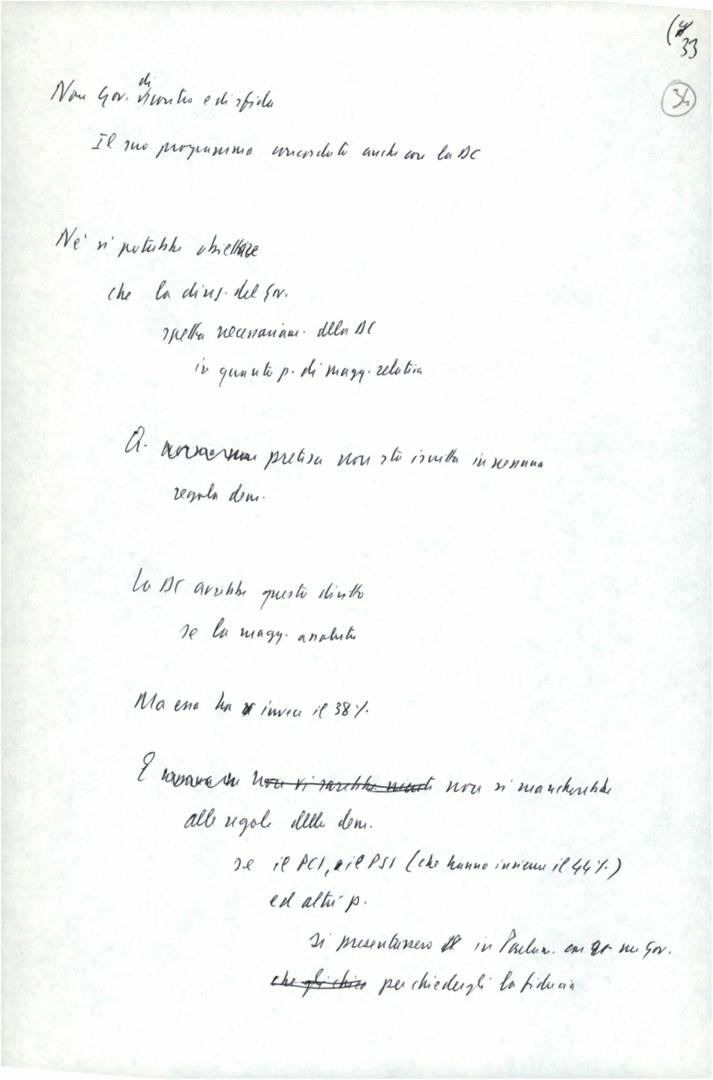 33
34
Non Gov. di scontro e di sfida
Il suo programma concordato anche con la DC
Né si potrebbe obiettare
che la direz. del Gov.
spetta necessariam. alla DC
in quanto p. di magg. relativa
Q. pretesa non sta iscritta in nessuna
regola dem.
La DC avrebbe questo diritto
se la magg. assoluta
Ma essa ha invece il 38%.
E non vi sarebbe niente non si mancherebbe
alle regole della dem.
se il PCI, e il PSI (che hanno insieme il 44%)
ed altri p.
si presentassero in Parlam. con un Gov.
che gli chied per chiedergli la fiducia